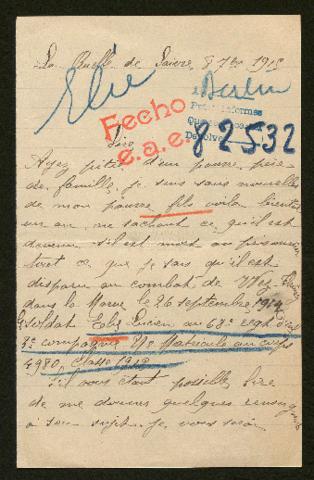 La Ruelle de Saivre 8 7bre 1915
Elie
Berlin
Fecho
e.a.e.
82532
Sire
Ayez pitié d'un pauvre père
de famille, je suis sans nouvelles
de mon pauvre fils voila bientôt
un an, ne sachant ce qu'il est
devenu s'il est mort ou prisonnier
tout ce que je sais qu'il est
disparu au combat de
dans la Marne le 26 septembre 1914
le soldat Elie Lucien au 68e regt d'inf
3e compagnie No Matricule au corps
4980, Classe
s'il vous était possible Sire
de me donner quelques renseign
à son sujet je vous serai